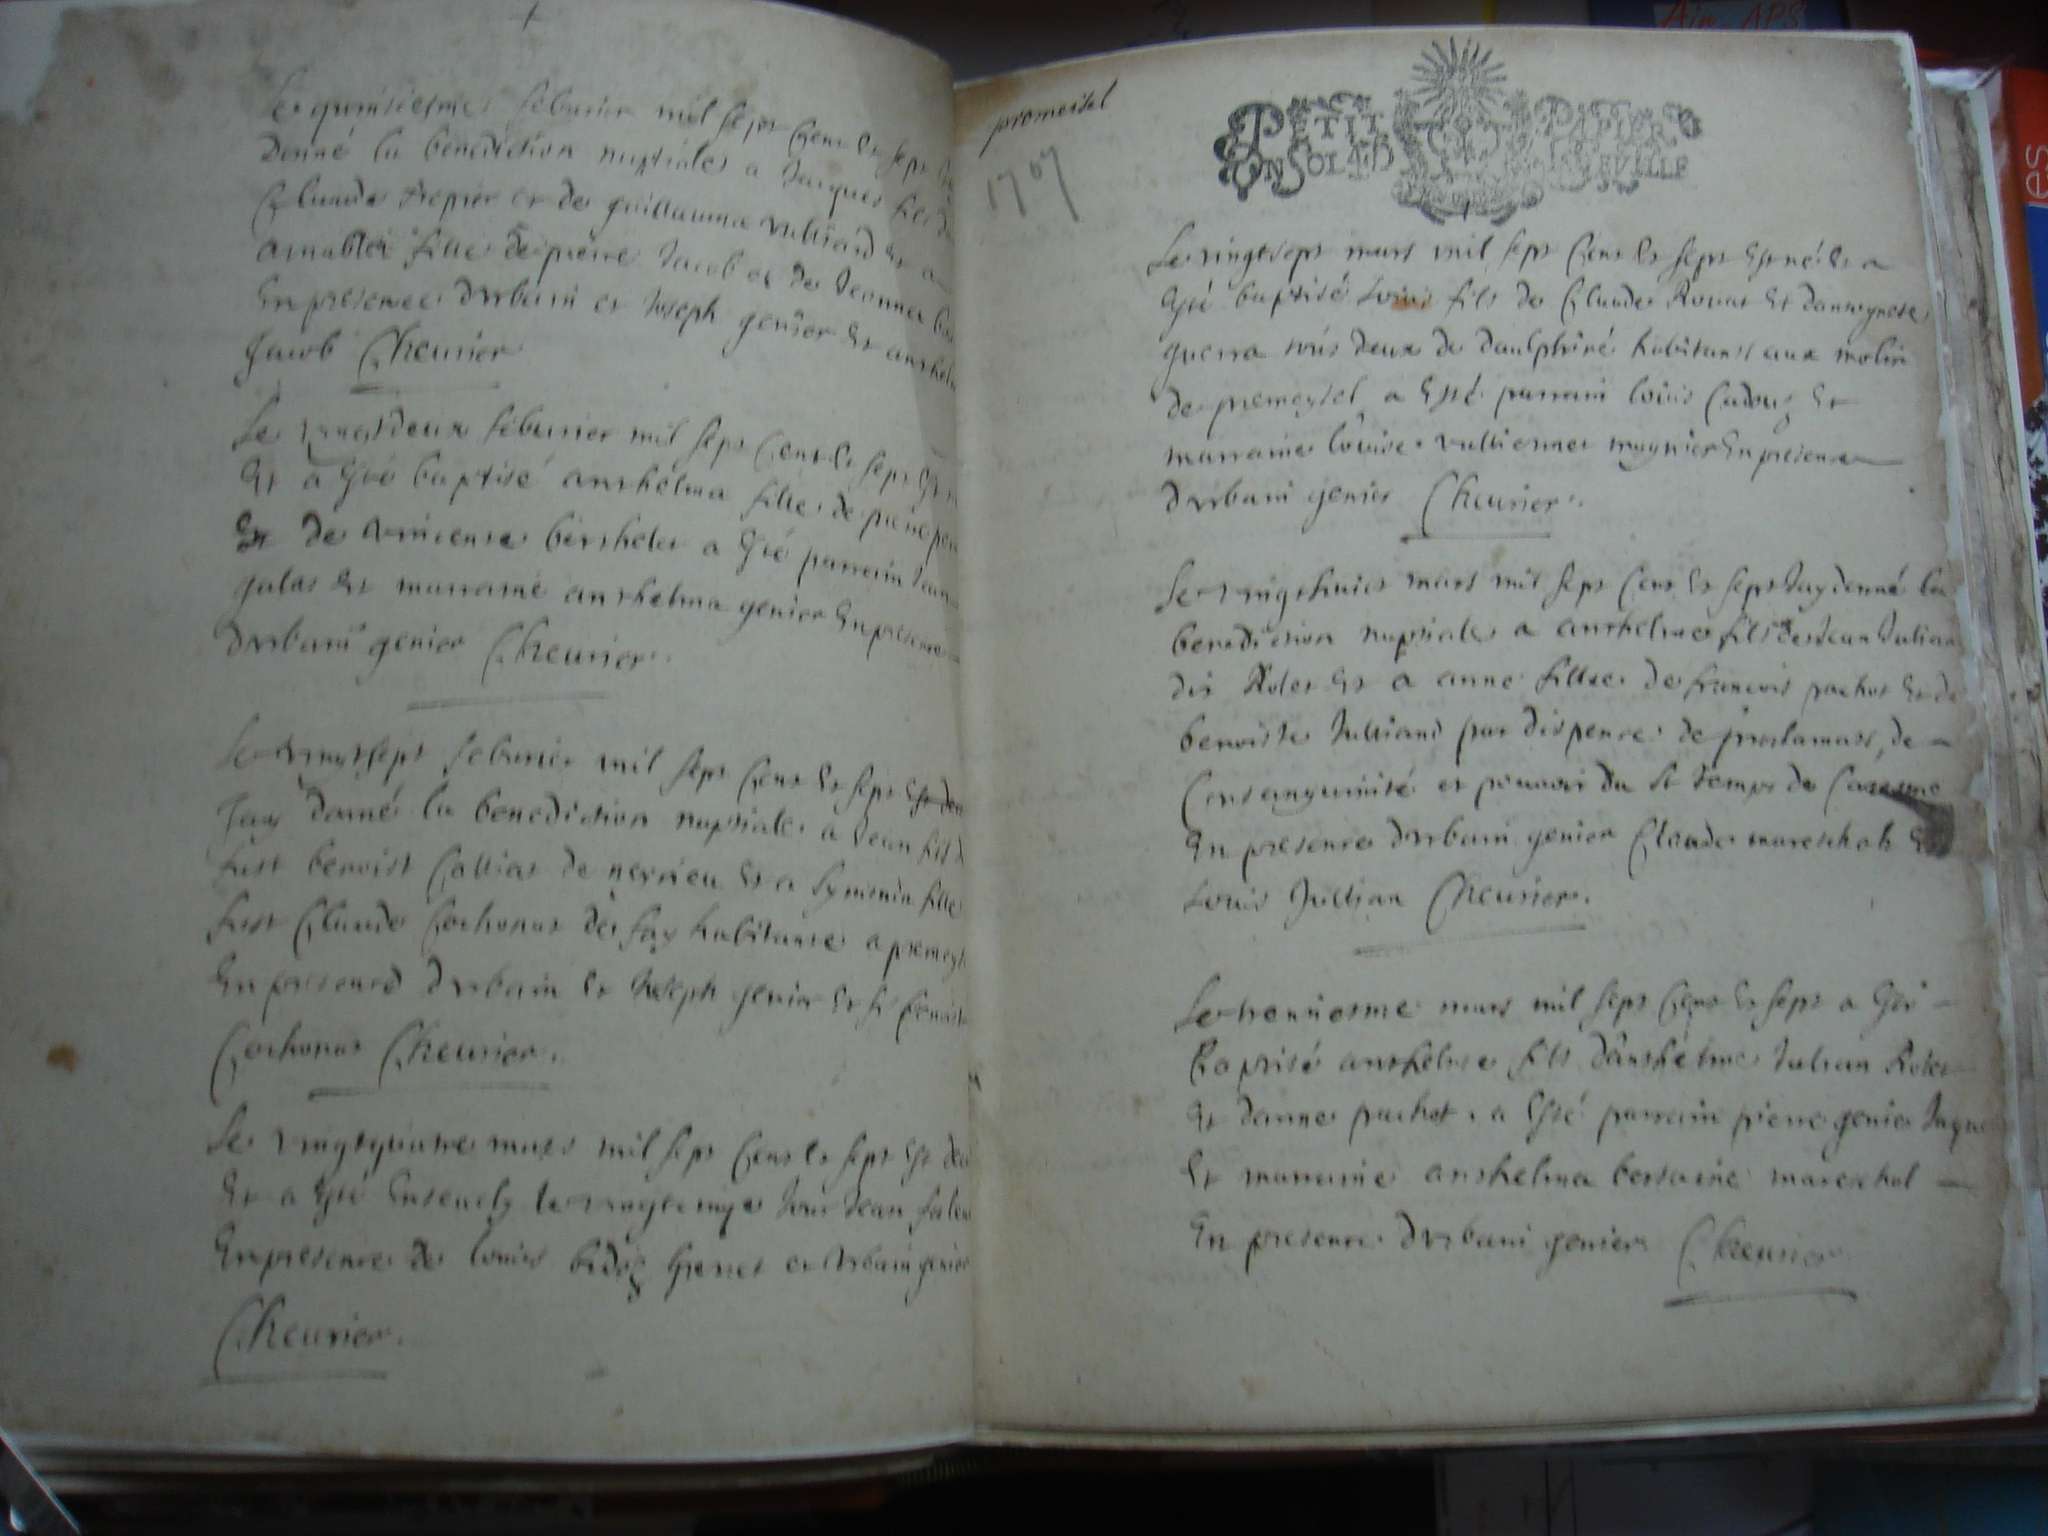 Le quinsiesme feburier mil sept Cent et sept
donné la benediction nuptiale a Jacques fils
Claude trepier et de guillauma vulliard et a
fille de pierre Jacob et de Jeanne
En presence durbain et Joseph genier et anthel
Jacob Cheurier
Le vingtdeux feburier mil sept Cent et sept
Et a esté baptisé anthelma fille de pierre
Et de berthelet a esté parrain
galas Et marraine anthelma genier En presence
durbain genier Cheurier.
Le vingtsept feburier mil sept Cent et sept
Jay donné la benediction nuptiale a Jean fils
fust benoist Collias de neyrieu Et a fille
fust Claude Cochonat de fay habitante a premey
En presence durbain Et Joseph genier Et
Cochonat Cheurier.
Le vingtquatre mars mil sept Cent et sept
Et a esté Enseuely le Jean
En presence de louis et urbain genier
Cheurier.
promeisel
1707
PETIT PAPIER
UN SOL 4.D LA FEVILLE
Le vingtsept mars mil sept Cent Et sept Est né Et a
esté baptisé Louis fils de Claude Et
guerra tous deux de daulphiné habitans aux molin
de premeysel a esté parrain louis Et
marraine louise mugnier En presence
durbain genier Cheurier.
Le vingthuict mars mil sept Cent Et sept Jay donné la
benediction nuptiale a anthelme fils de Jean Julian
dit Rolet Et a anne fille de francois pochet Et de
benoiste Julliand par dispense de proclamats, de
Consanguinité et pouvoir du st temps de Caresme
En presence durbain genier Claude mareschal Et
Louis Jullian Cheurier.
Le trentiesme mars mil sept Cent Et sept a esté
Baptisé anthelme fils d'anthelme Julian Rolet
Et danne puchet, a esté parrain pierre genier
Et marraine anthelma mareschal
En presence durbain genier Cheurier